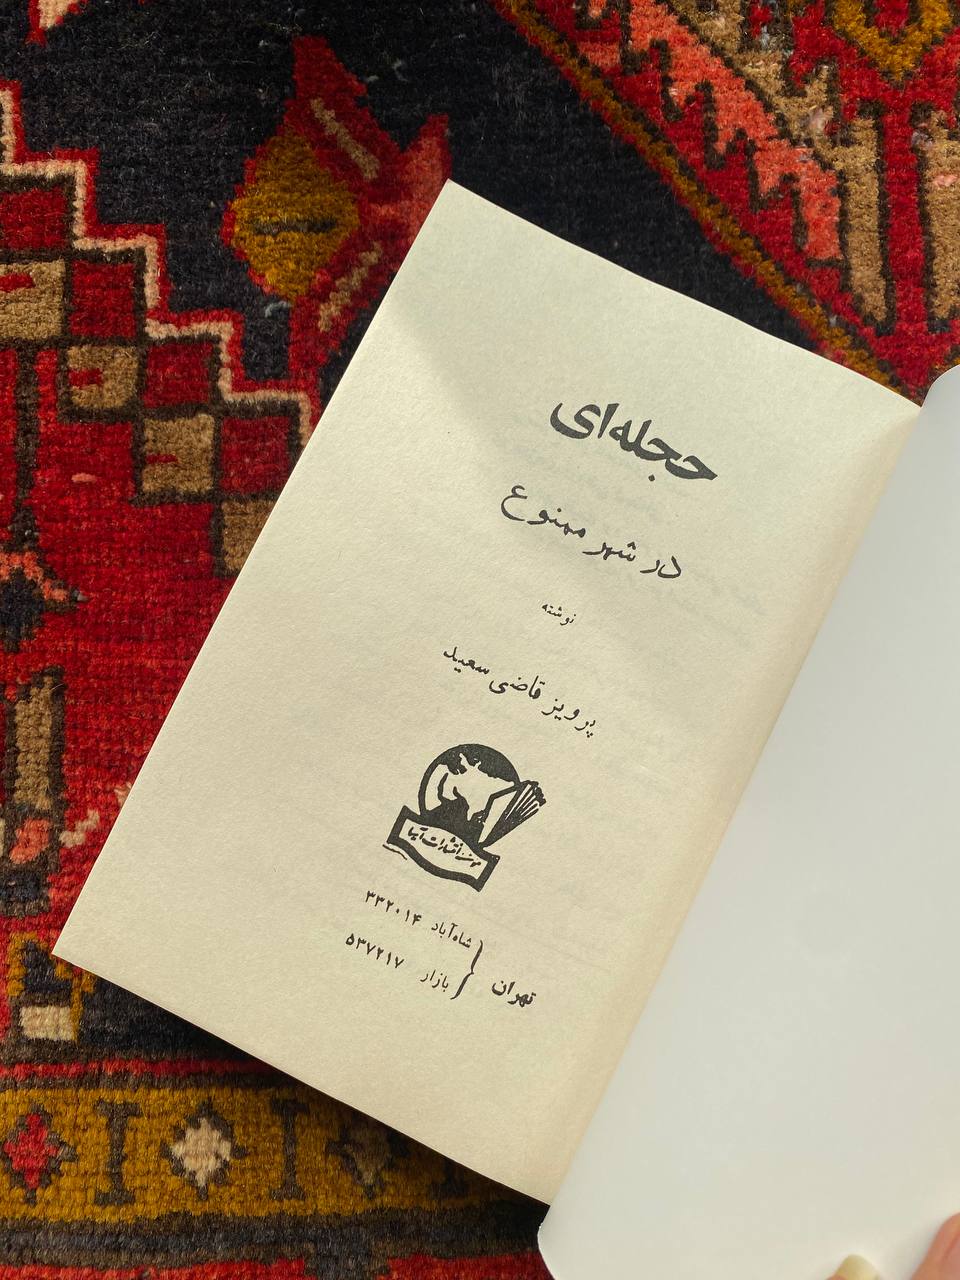 حجله‌ای
در شهر ممنوع
نوشته
پرویز قاضی سعید
موسسه انتشارات آسیا
تهران
شاه‌آباد ۳۳۲۰۱۴
بازار ۵۳۷۲۱۷